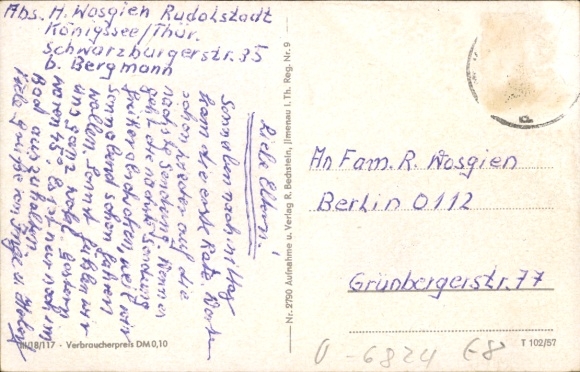 Abs. H. Wosgien Rudolstadt
Königssee/Thür.
Schwarzburgerstr. 35
b. Bergmann
Liebe Eltern!
Sonnabend nach Mittag
kam die erste Karte. Warten
schon wieder auf die
nächste Sendung. Wenn
geht die nächste Sendung
früher abschicken, weil wir
Sonnabend schon fahren
wollen. Sonst fühlen wir
uns ganz wohl.
Bad auszuhalten.
Viele Grüße von Inge u.
Nr. 2790 Aufnahme u. Verlag R. Bechstein, Jlmenau i. Th. Reg. Nr. 9
An Fam. R. Wosgien
Berlin 0112
Grünbergerstr. 77
III/18/117 - Verbraucherpreis DM 0,10
T 102/57
0-6824 E8